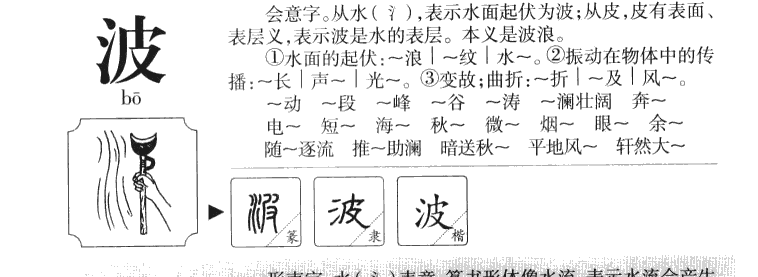 波
bō
会意字。从水(氵),表示水面起伏为波;从皮,皮有表面、
表层义,表示波是水的表层。本义是波浪。
①水面的起伏:~浪|~纹|水~。②振动在物体中的传
播:~长|声~|光~。③变故;曲折:~折|~及|风~。
~动 ~段 ~峰 ~谷 ~涛 ~澜壮阔 奔~
电~ 短~ 海~ 秋~ 微~ 烟~ 眼~ 余~
随~逐流 推~助澜 暗送秋~ 平地风~ 轩然大~
波 篆
波 隶
波 楷